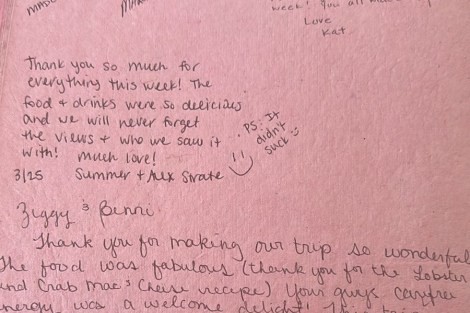 week! You all
Love
Kat
Thank you so much for
everything this week! The
food + drinks were so delicious
and we will never forget
the views + who we saw it
with! much love!
3/25 Summer + Alex Strate
PS: It
didn't
suck
Ziggy & Benni
Thank you for making our trip so wonderful
The food was fabulous (thank you for the Lobster
and Crab Mac & Cheese recipe) Your guys carefree
energy was a welcome delight!